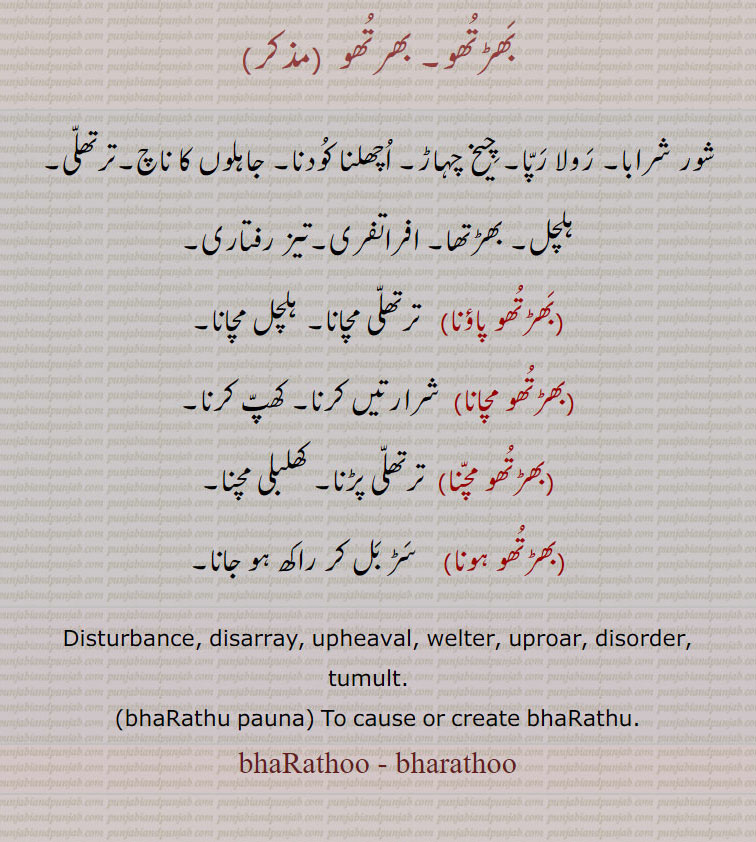 بَھڑتُھو۔ بھرتُھو (مذکر)
شور شرابا۔ رَولا رَپّا۔ چِیخ چہاڑ۔ اُچھلنا کُودنا۔ جاہلوں کا ناچ۔ترتھلّی۔
ہلچل۔ بھڑتھا۔ افراتفری۔تیز رفتاری۔
(بَھڑتُھو پاؤنا) ترتھلّی مچانا۔ ہلچل مچانا۔
(بھڑتُھو مچانا) شرارتیں کرنا۔ کھپّ کرنا۔
(بھڑتُھو مچّنا) ترتھلّی پڑنا۔ کھلبلی مچنا۔
(بھڑتُھو ہونا) سَڑ بَل کر راکھ ہو جانا۔
Disturbance, disarray, upheaval, welter, uproar, disorder,
tumult.
(bhaRathu pauna) To cause or create bhaRathu.
bhaRathoo - bharathoo